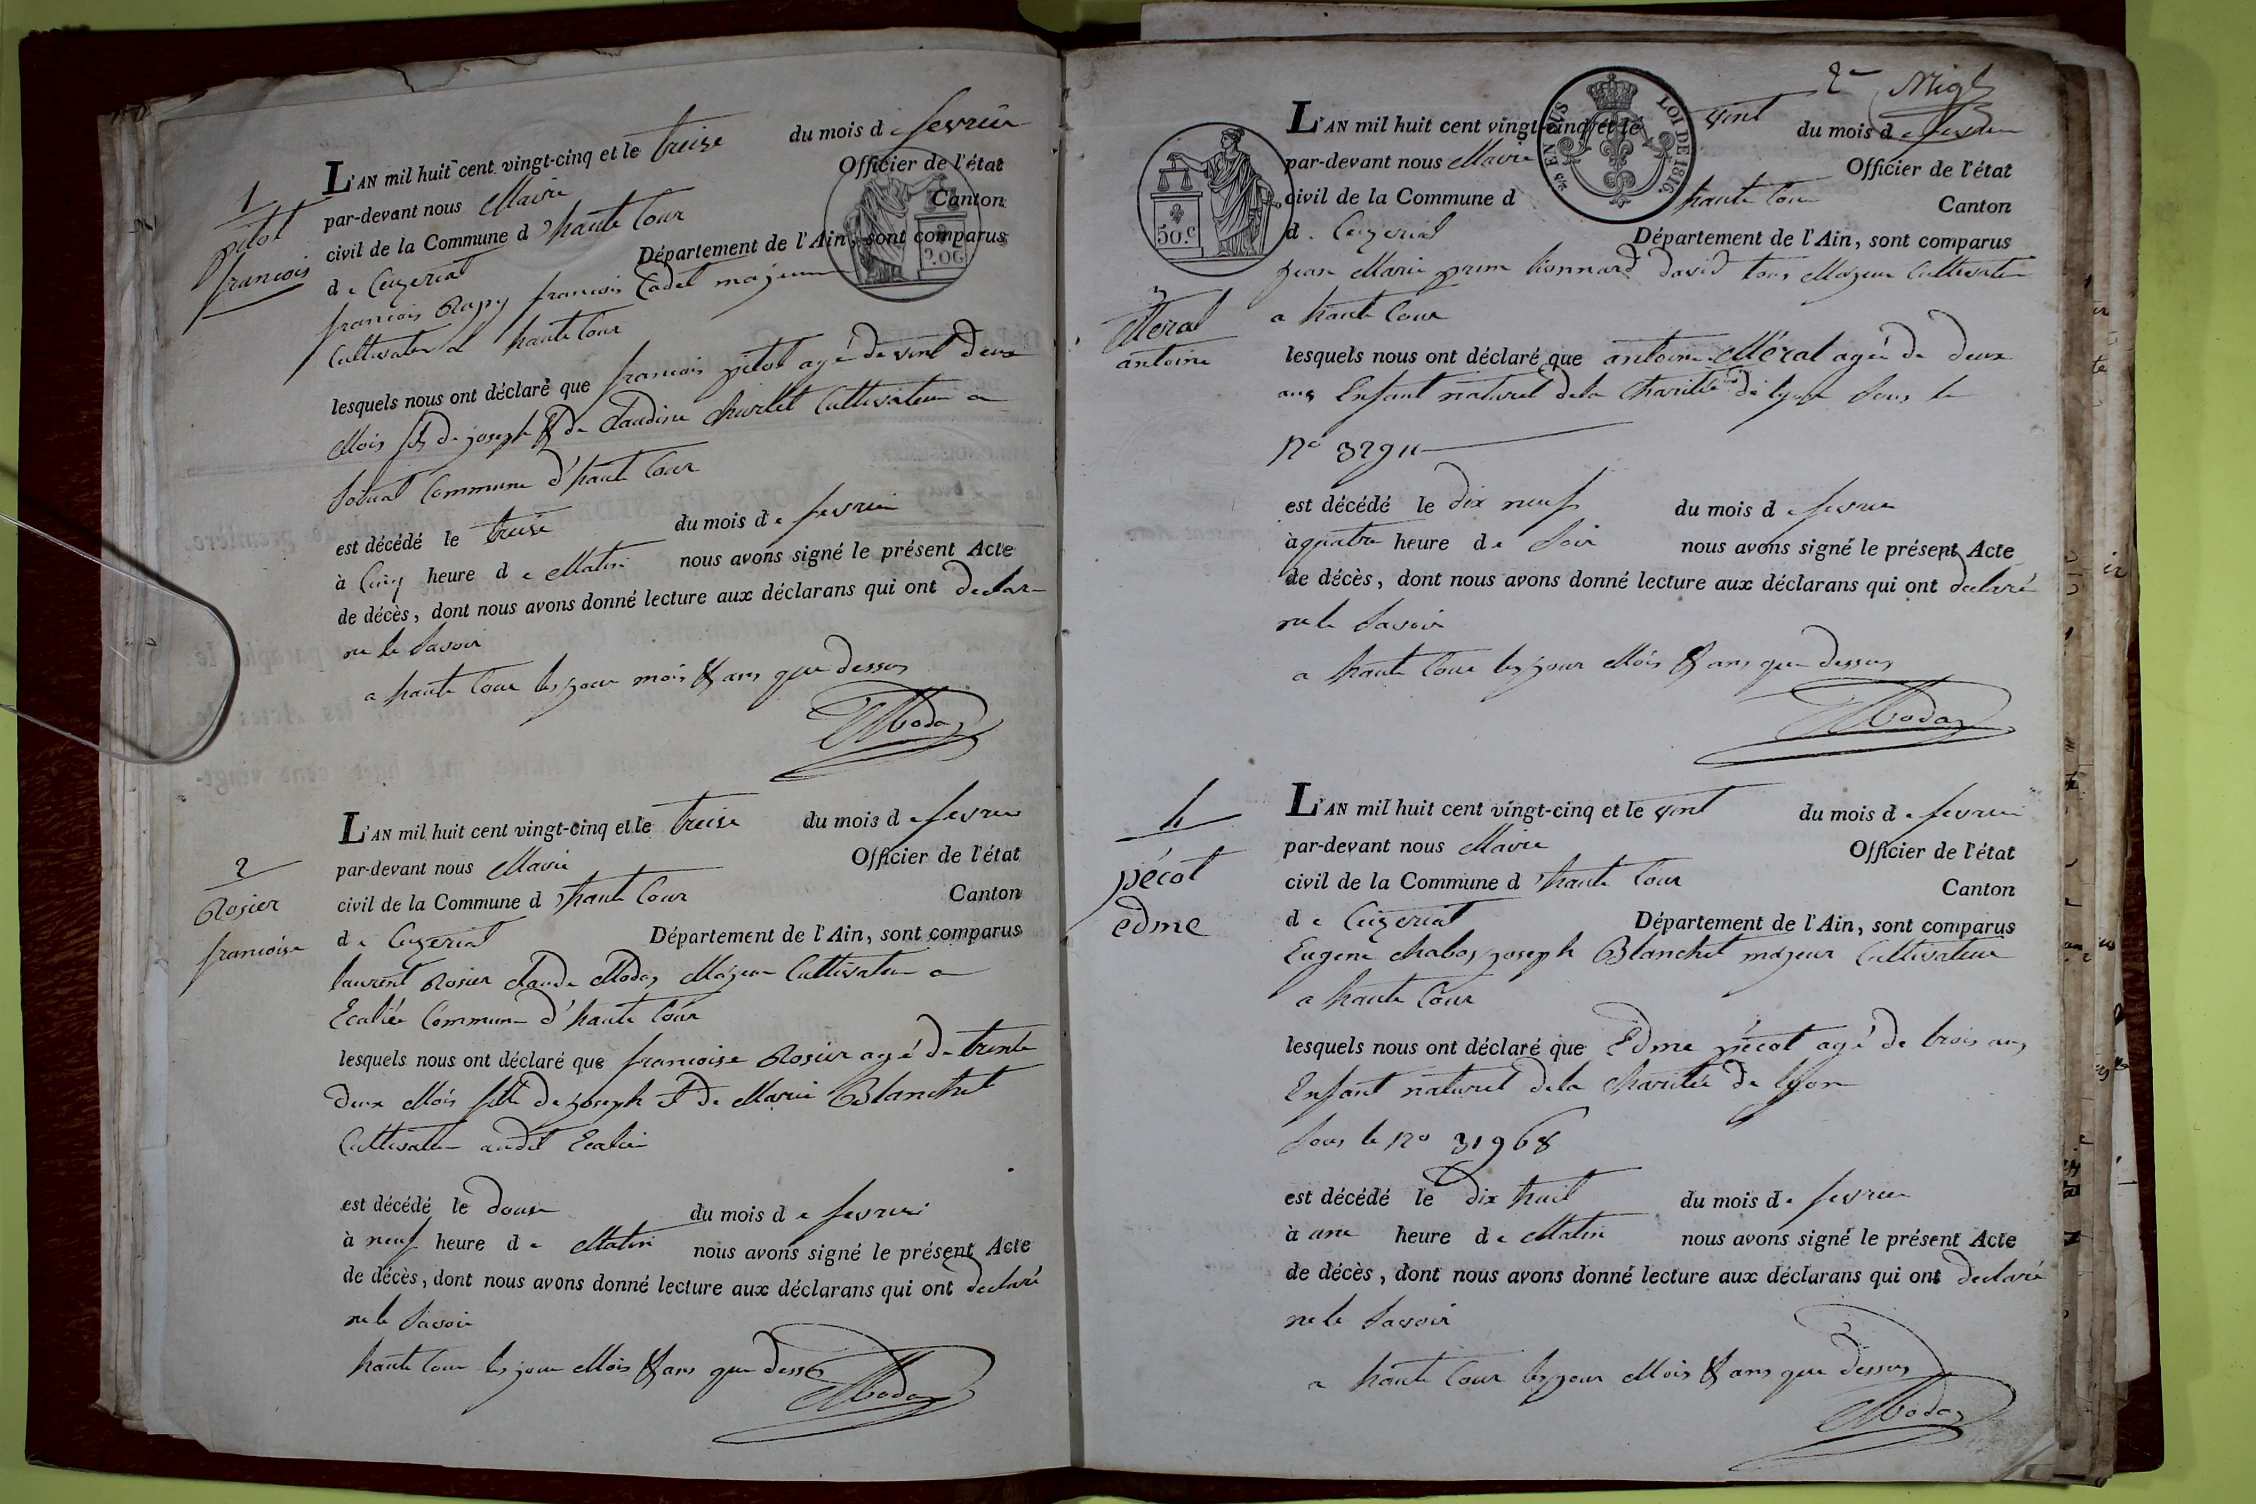 1
pitot
francois
L'AN mil huit cent vingt-cinq et le treise du mois d e fevrier
par-devant nous Maire Officier de l'état
civil de la Commune d haute Cour Canton
d e Ceyzeriat Département de l'Ain, sont comparus
francois Rapy francois Cadet majeur
Cultivateur a haute Cour
lesquels nous ont déclaré que francois pitot agé de vint deux
Mois fils de joseph & de Claudine Charlet Cultivateur a
Commune d'haute Cour
est décédé le treise du mois d e fevrier
à Cinq heure d e Matin nous avons signé le présent Acte
de décès, dont nous avons donné lecture aux déclarans qui ont declaré
ne le Savoir
a haute Cour les jour mois & ans que dessus
2
Rosier
francoise
L'AN mil huit cent vingt-cinq et le treise du mois d e fevrier
par-devant nous Maire Officier de l'état
civil de la Commune d haute Cour Canton
d e Ceyzeriat Département de l'Ain, sont comparus
laurent Rosier Claude Moday Majeur Cultivateur a
Commune d'haute Cour
lesquels nous ont déclaré que francoise Rosier agé de trente
deux Mois fille de joseph et de Marie Blanchet
Cultivateur audit
est décédé le douse du mois d e fevrier
à neuf heure d e Matin nous avons signé le présent Acte
de décès, dont nous avons donné lecture aux déclarans qui ont declaré
ne le Savoir
haute Cour les jour Mois & ans que dessus
Moday
2e
EN SUS
LOI DE 1816.
50.C
3
Meral
antoine
L'AN mil huit cent vingt-cinq et le vint du mois d e fevrier
par-devant nous Maire Officier de l'état
civil de la Commune d haute Cour Canton
d e Ceyzeriat Département de l'Ain, sont comparus
jean Marie prim lionnard david tous Majeur Cultivateur
a haute Cour
lesquels nous ont déclaré que antoine Méral agée de deux
ans Enfant naturel dela Charitée de lyon Sous le
No
est décédé le dix neuf du mois d e fevrier
à quatre heure d e Soir nous avons signé le présent Acte
de décès, dont nous avons donné lecture aux déclarans qui ont declaré
ne le Savoir
a haute Cour les jour Mois & ans que dessus
Moday
4
pécot
edme
L'AN mil huit cent vingt-cinq et le vint du mois d e fevrier
par-devant nous Maire Officier de l'état
civil de la Commune d haute Cour Canton
d e Ceyzeriat Département de l'Ain, sont comparus
Eugene Chaboy joseph Blanchet majeur Cultivateur
a haute Cour
lesquels nous ont déclaré que Edme pécot agé de trois ans
Enfant naturel dela Charitée de lyon
Sous le No 31968
est décédé le dix huit du mois d e fevrier
à une heure d e Matin nous avons signé le présent Acte
de décès, dont nous avons donné lecture aux déclarans qui ont declaré
ne le Savoir
a haute Cour les jour Mois & ans que dessus
Moday